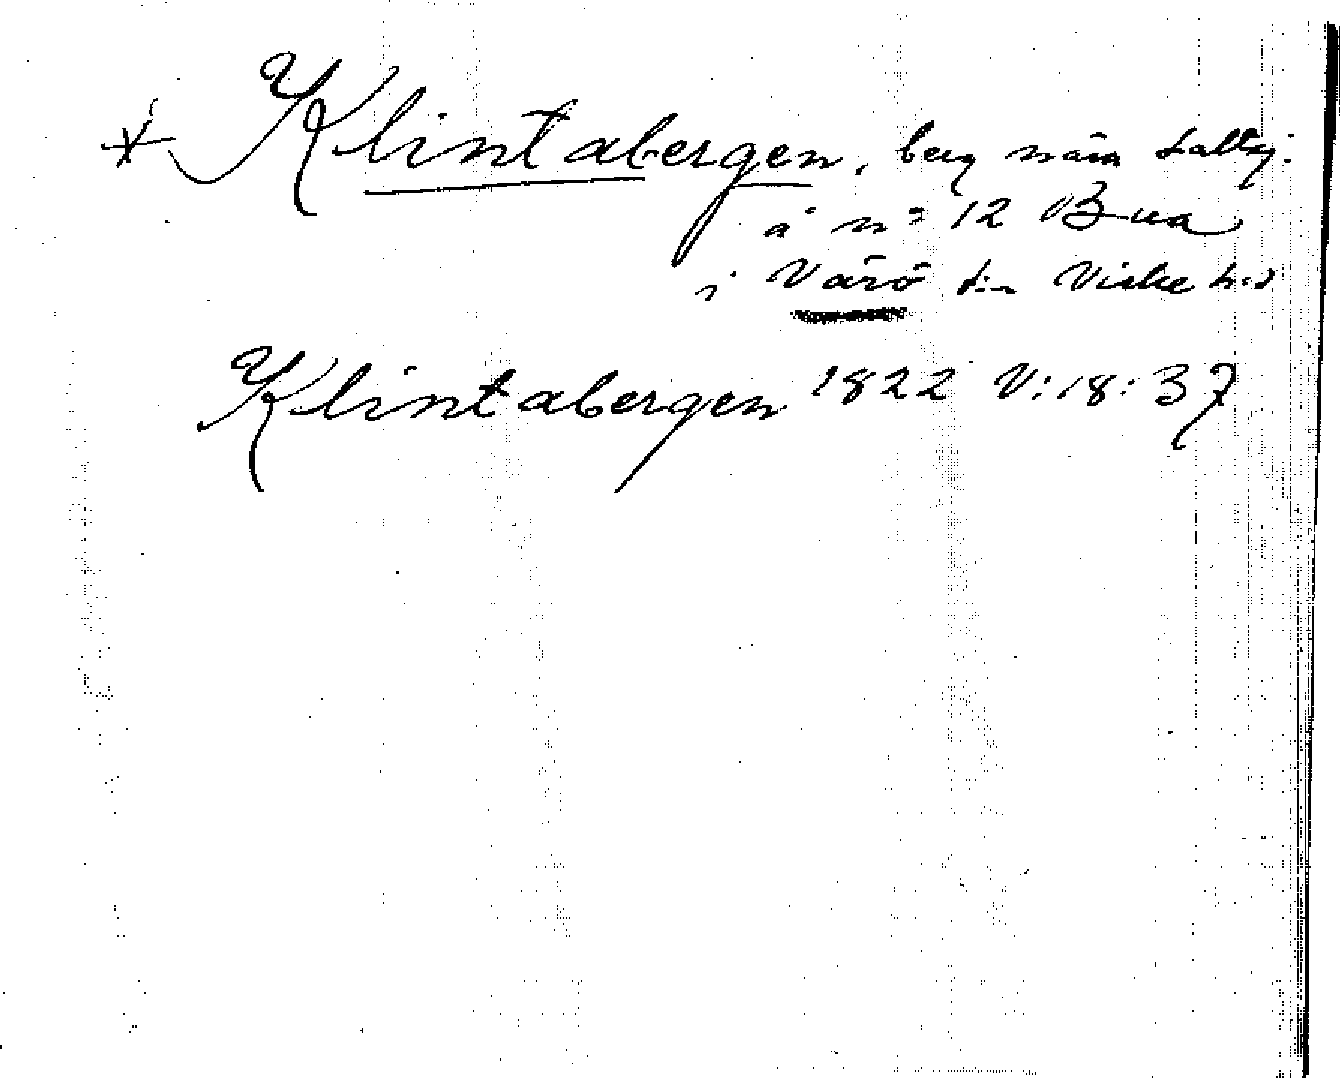 * Klintabergen, berg nära
å nº 12 Bua
i Värö sn Viske hd
Klintabergen 1822 V:18:37